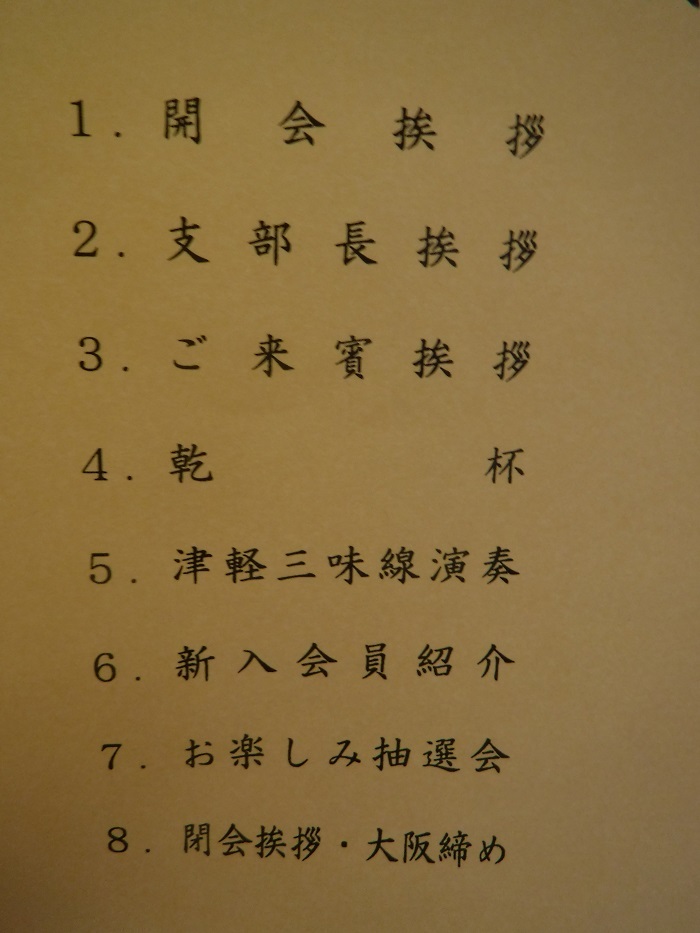 1. 開会挨拶
2. 支部長挨拶
3. ご来賓挨拶
4. 乾杯
5. 津軽三味線演奏
6. 新入会員紹介
7. お楽しみ抽選会
8. 閉会挨拶・大阪締め